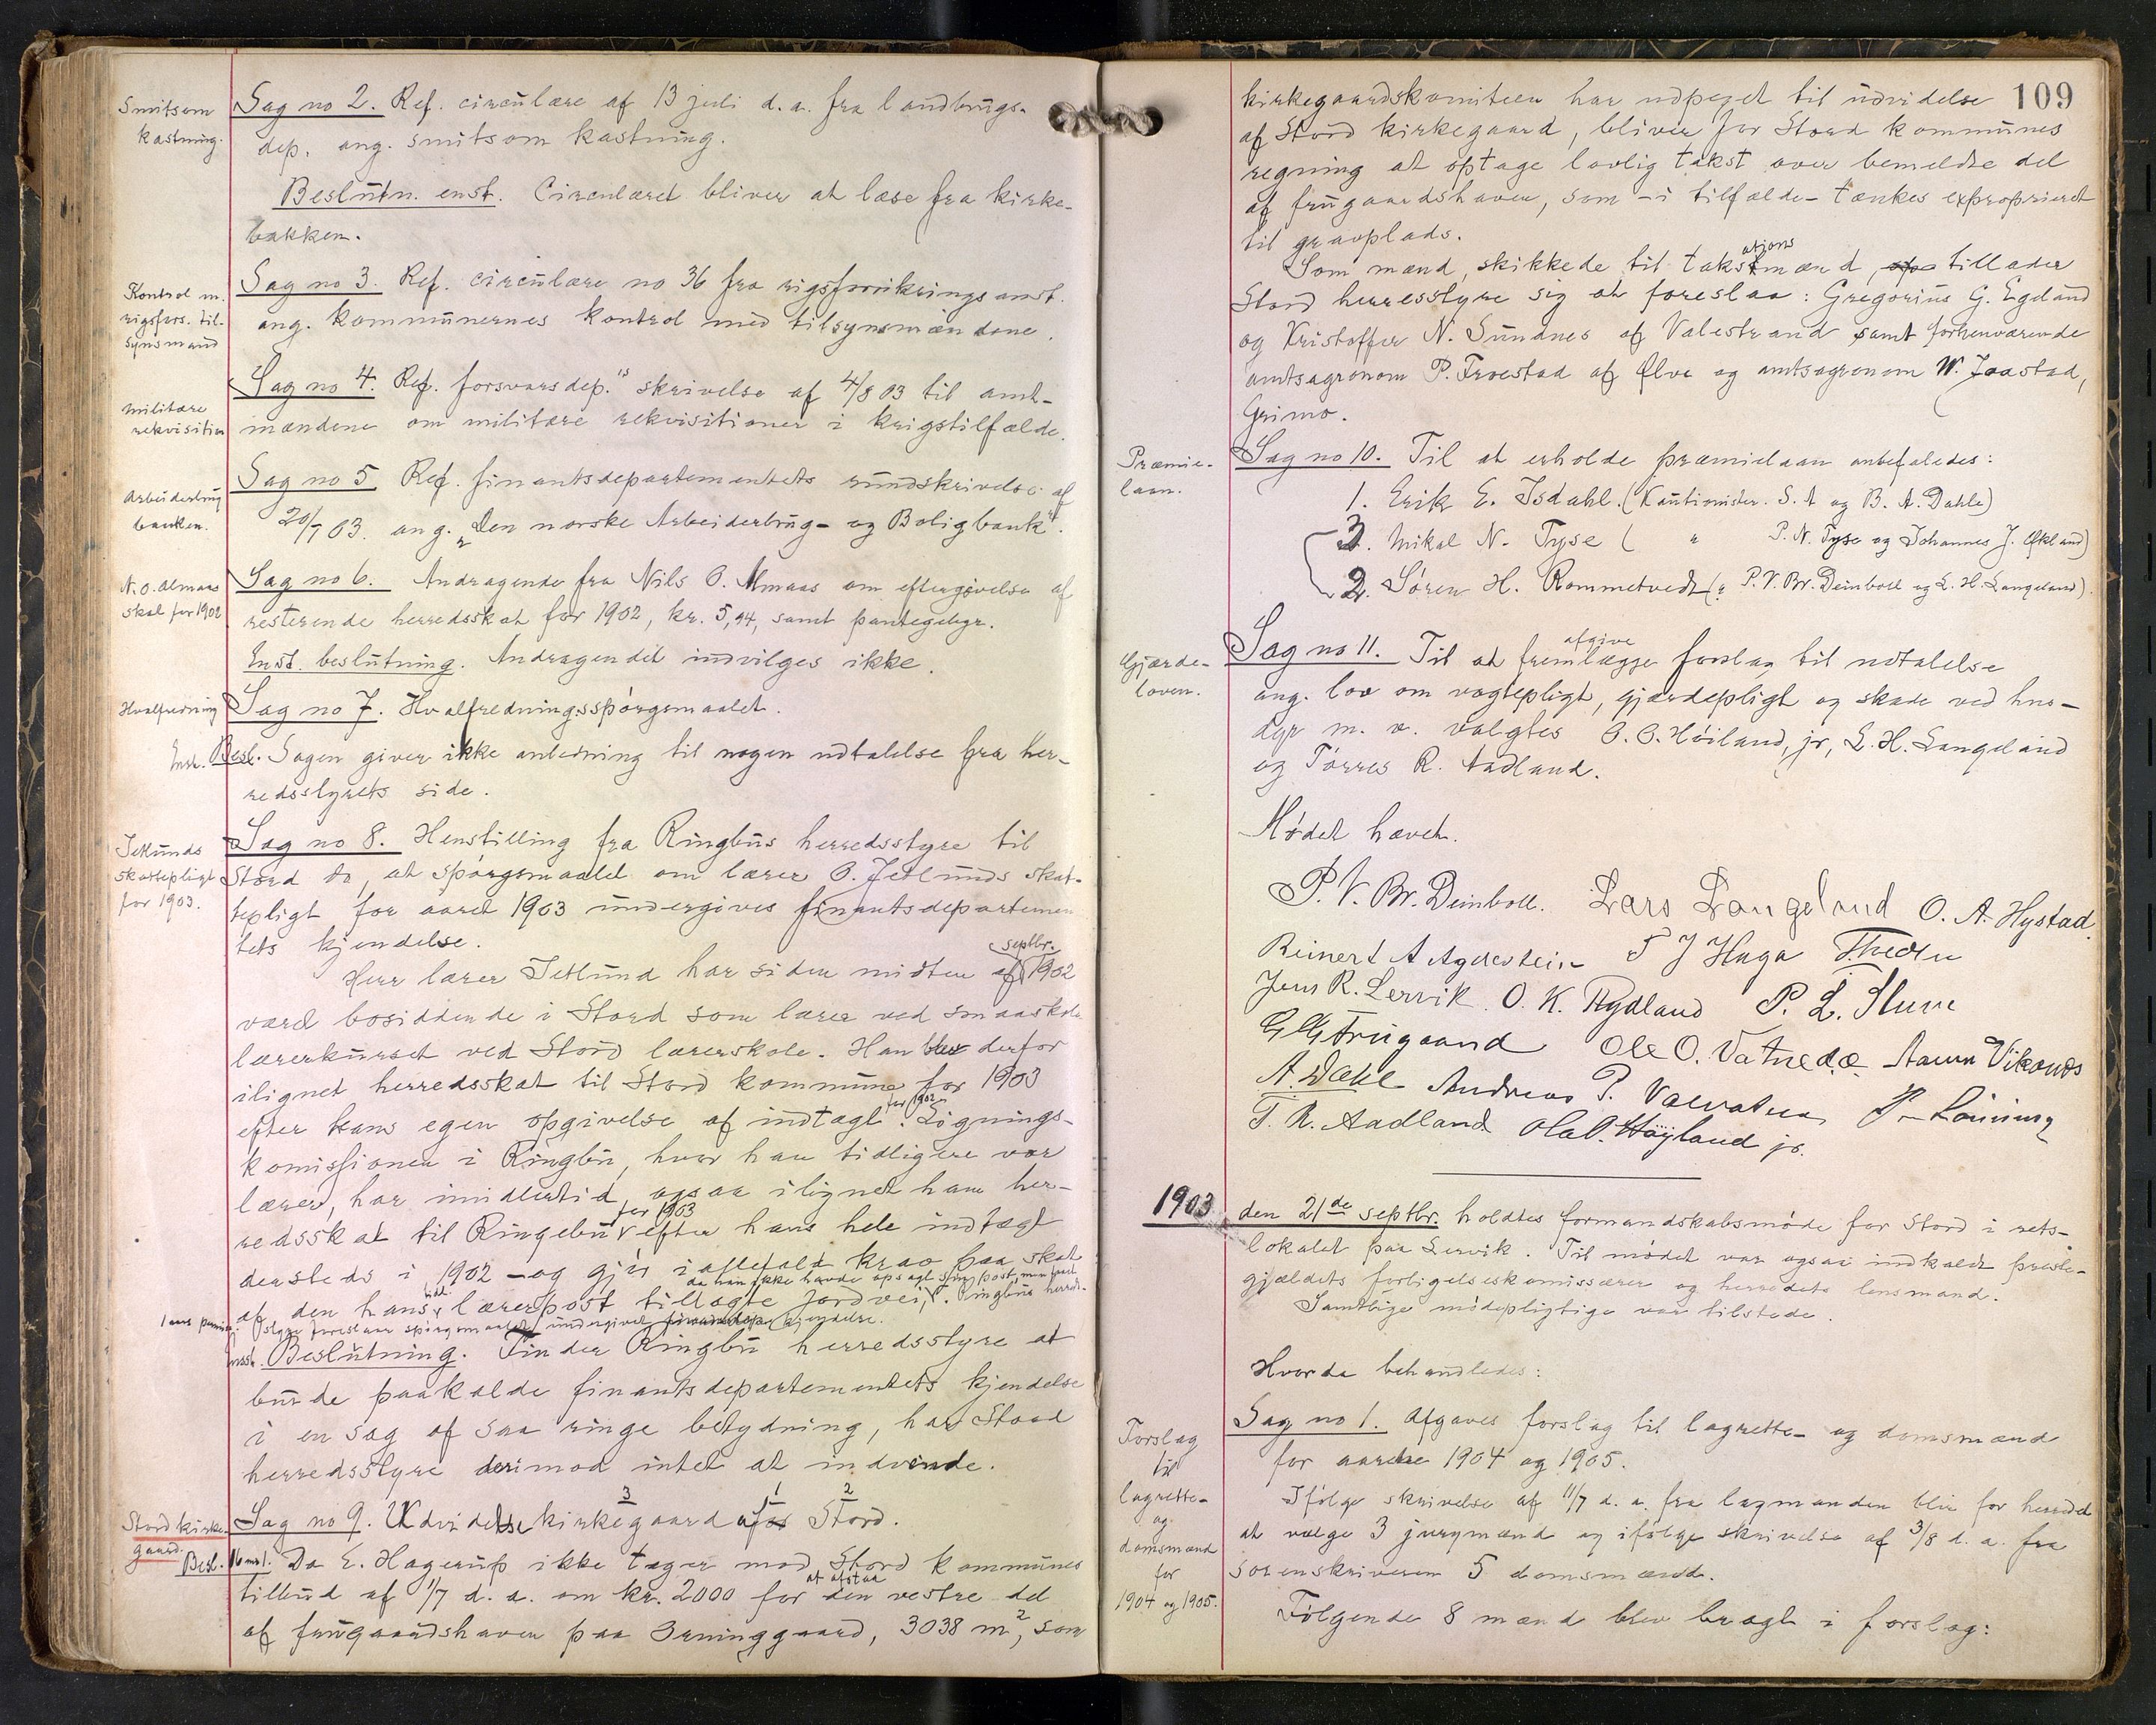 Smitsom
kastning.
Sag no 2. Ref. circulære af 13 juli d. a. fra landbrugs-
dep. ang. smitsom kastning.
Beslutn. enst. Circulæret bliver at læse fra kirke-
bakken.
Kontrol m.
rigsfors. til-
synsmænd
Sag no 3. Ref. circulære no 36 fra rigsforsikringsanst.
ang. kommunernes kontrol med tilsynsmændene.
Militære
rekvisition
Sag no 4. Ref. forsvarsdep.'s skrivelse af 4/8 03 til amt-
mændene om militære rekvisitioner i krigstilfælde.
Arbeiderbrug
banken.
Sag no 5 Ref. finantsdepartementets rundskrivelse af
20/7 03. ang. „Den norske Arbeiderbrug- og Boligbank“.
N. O. Almaas
skat for 1902
Sag no 6. Andragende fra Nils O. Almaas om eftergivelse af
resterende herredsskat for 1902, kr. 5,94, samt pantegebyr.
Enst. beslutning. Andragendet indvilges ikke.
Hvalfredning
Sag no 7. Hvalfredningsspørgsmaalet.
Enst. Besl. Sagen giver ikke anledning til nogen udtalelse fra her-
redsstyrets side.
Jetlunds
skattepligt
for 1903.
Sag no 8. Henstilling fra Ringbus herredsstyre til
Stord do, at spørgsmaalet om lærer O. Jetlunds skat-
tepligt for aaret 1903 undergives finantsdepartemen
tets kjendelse.
Herr lærer Jetlund har siden midten af septbr. 1902
været bosiddende i Stord som lærer ved smaaskole
lærerkurset ved Stord lærerskole. Han blev derfor
ilignet herredsskat til Stord kommune for 1903
efter hans egen opgivelse af indtægt for 1902. Lignings-
komissionen i Ringbu, hvor han tidligere var
lærer, har imidlertid ogsaa ilignet ham her-
redsskat til Ringebu for 1903 efter hans hele indtægt
dersteds i 1902 – og gjør iallefald krav paa skat
af den hans tidl. lærerpost tillagte jordvei, da han ikke havde opsagt sin post, men havt
1 aars permission. Ringbus herreds-
styre foreslaar spørgsmaalet undergivet finantsdep. kjendelse.
Enst. Beslutning. Finder Ringbu herredsstyre at
burde paakalde finantsdepartementets kjendelse
i en sag af saa ringe betydning, har Stord
herredsstyre derimod intet at indvende.
Stord kirke-
gaard.
Sag no 9. Udvidelse kirkegaard af Stord.
3 1 2
Besl. 16 m. 1. Da E. Hagerup ikke tager mod Stord kommunes
tilbud af 1/7 d. a. om kr. 2000 for at afstaa den vestre del
af frugaardshaven paa Orninggaard, 3038 m², som
109
kirkegaardskomiteen har udpeget til udvidelse
af Stord kirkegaard, bliver for Stord kommunes
regning at optage lovlig takst over bemeldte del
af frugaardshaven, som – i tilfælde – tænkes exproprieret
til gravplads.
Som mænd, skikkede til takstationsmænd, tillader
Stord herresstyre sig at foreslaa: Gregorius G. Egland
og Kristoffer N. Sundnes af Valestrand samt forhenværende
amtsagronom P. Froestad af Ølve og amtsagronom W. Jaastad,
Grimo.
Præmie-
laan.
Sag no 10. Til at erholde præmielaan anbefaledes:
1. Erik E. Isdahl. (Kautionister. S. A og B. A. Dahle)
3. Mikal N. Tyse ( „ P. N. Tyse og Johannes J. Økland)
2. Søren H. Rommetvedt („ P. V. Br. Deinboll og L. H. Langeland).
Gjærde-
loven.
Sag no 11. Til at fremlægge afgive forslag til udtalelse
ang. lov om vogtepligt, gjærdepligt og skade ved hus-
dyr m. v. valgtes O. O. Höiland, jr, L. H. Langeland
og Tørres R. Aadland.
Mødet hævet.
P. V. Br. Deinboll. Lars Langeland O. A. Hystad.
Reinert A Agdestein T J Haga
Jens R. Lervik. O. K. Rydland P. L. Stuve
G G Frugaard Ole O. Vatnedæ
A. Dahl Andreas P. Valvatna
T. R. Aadland Ola O. Høyland jr.
1903 den 21de septbr. holdtes formandskabsmøde for Stord i rets-
lokalet paa Lervik. Til mødet var ogsaa indkaldt præste-
gjældets forligelseskomissærer og herredets lensmand.
Samtlige mødepligtige var tilstede.
Hvorda behandledes:
Forslag
til
lagrette-
og
domsmænd
for
1904 og 1905.
Sag no 1. Afgaves forslag til lagrette- og domsmænd
for aarene 1904 og 1905.
Ifølge skrivelse af 11/7 d. a. fra lagmanden blir for herredet
at vælge 3 jurymænd og ifølge skrivelse af 3/8 d. a. fra
sorenskriveren 5 domsmænd.
Følgende 8 mænd blev bragt i forslag: